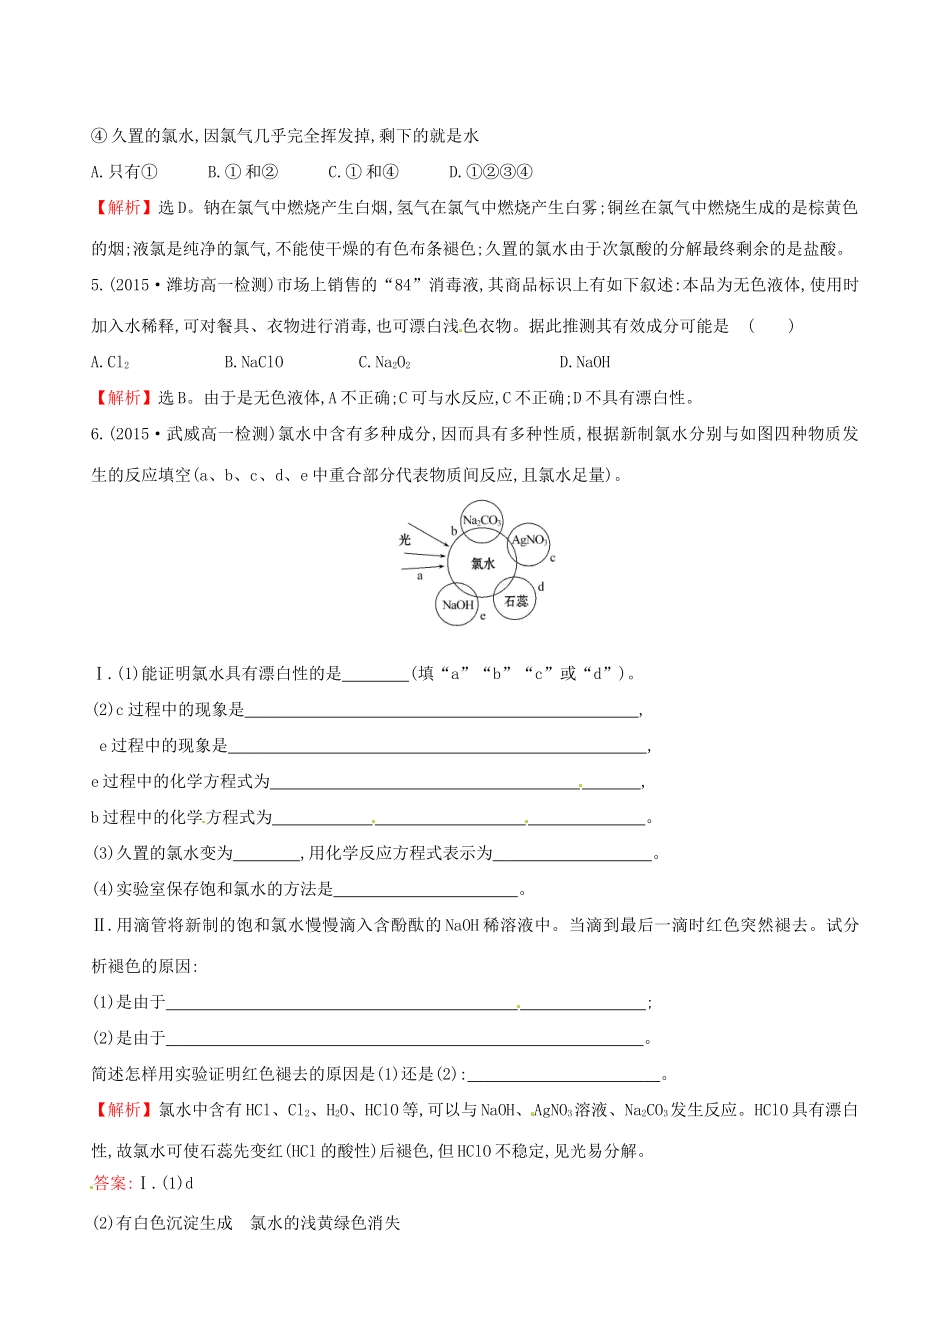 ④ 久置的氯水,因氯气几乎完全挥发掉,剩下的就是水
A.只有① B.① 和② C.① 和④ D.①②③④
【解析】选 D。钠在氯气中燃烧产生白烟,氢气在氯气中燃烧产生白雾;铜丝在氯气中燃烧生成的是棕黄色
的烟;液氯是纯净的氯气,不能使干燥的有色布条褪色;久置的氯水由于次氯酸的分解最终剩余的是盐酸。
5.(2015·潍坊高一检测)市场上销售的“84”消毒液,其商品标识上有如下叙述:本品为无色液体,使用时
加入水稀释,可对餐具、衣物进行消毒,也可漂白浅色衣物。据此推测其有效成分可能是 ( )
A.Cl₂ B.NaClO C.Na₂O₂ D.NaOH
【解析】选 B。由于是无色液体,A 不正确;C 可与水反应,C 不正确;D 不具有漂白性。
6.(2015·武威高一检测)氯水中含有多种成分,因而具有多种性质,根据新制氯水分别与如图四种物质发
生的反应填空(a、b、c、d、e 中重合部分代表物质间反应,且氯水足量)。
Na₂CO₃
b
光
AgNO₃
氯水
c
a
d
NaOH
石蕊
e
Ⅰ.(1)能证明氯水具有漂白性的是________(填“a”“b”“c”或“d”)。
(2)c 过程中的现象是________________,
e 过程中的现象是________________,
e 过程中的化学方程式为________________,
b 过程中的化学方程式为________________。
(3)久置的氯水变为________,用化学反应方程式表示为________________。
(4)实验室保存饱和氯水的方法是________________。
Ⅱ.用滴管将新制的饱和氯水慢慢滴入含酚酞的 NaOH 稀溶液中。当滴到最后一滴时红色突然褪去。试分
析褪色的原因:
(1)是由于________________;
(2)是由于________________。
简述怎样用实验证明红色褪去的原因是(1)还是(2):________________。
【解析】氯水中含有 HCl、Cl₂、H₂O、HClO 等,可以与 NaOH、AgNO₃溶液、Na₂CO₃发生反应。HClO 具有漂白
性,故氯水可使石蕊先变红(HCl 的酸性)后褪色,但 HClO 不稳定,见光易分解。
答案:Ⅰ.(1)d
(2)有白色沉淀生成 氯水的浅黄绿色消失